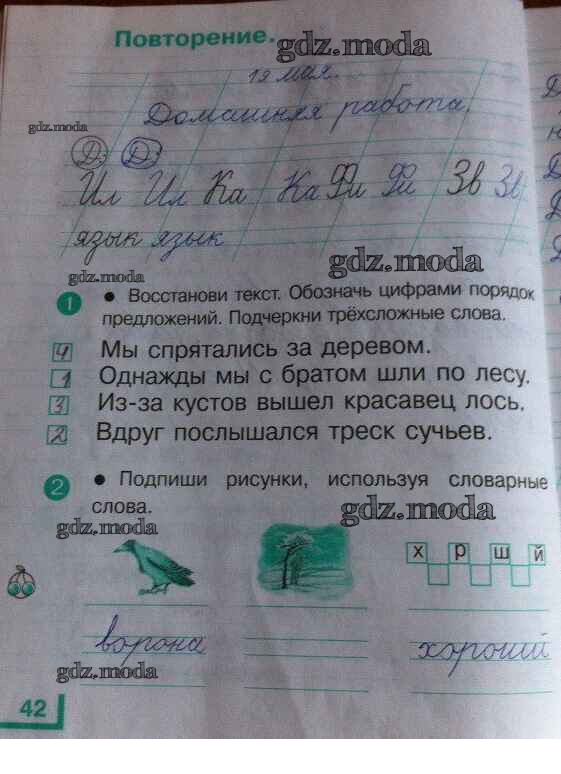 Повторение.
gdz.moda
19 мая.
Домашняя работа.
gdz.moda
Дз Дз
Ил Ил Ка Ка Фи Фи Зв Зв
язык язык
gdz.moda
gdz.moda
1 • Восстанови текст. Обозначь цифрами порядок
предложений. Подчеркни трёхсложные слова.
4 Мы спрятались за деревом.
1 Однажды мы с братом шли по лесу.
3 Из-за кустов вышел красавец лось.
2 Вдруг послышался треск сучьев.
2 • Подпиши рисунки, используя словарные
слова.
gdz.moda
gdz.moda
х р ш й
ворона хороший
gdz.moda
42